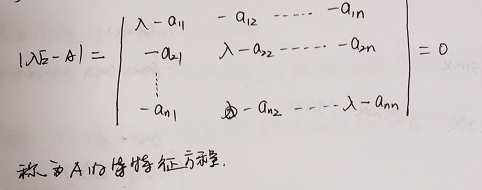 λ - a₁₁ - a₁₂ ------ - a₁ₙ
|λE - A| = - a₂₁ λ - a₂₂ ------ - a₂ₙ = 0
⋮
- aₙ₁ - aₙ₂ ------ λ - aₙₙ
称为A的特征方程.